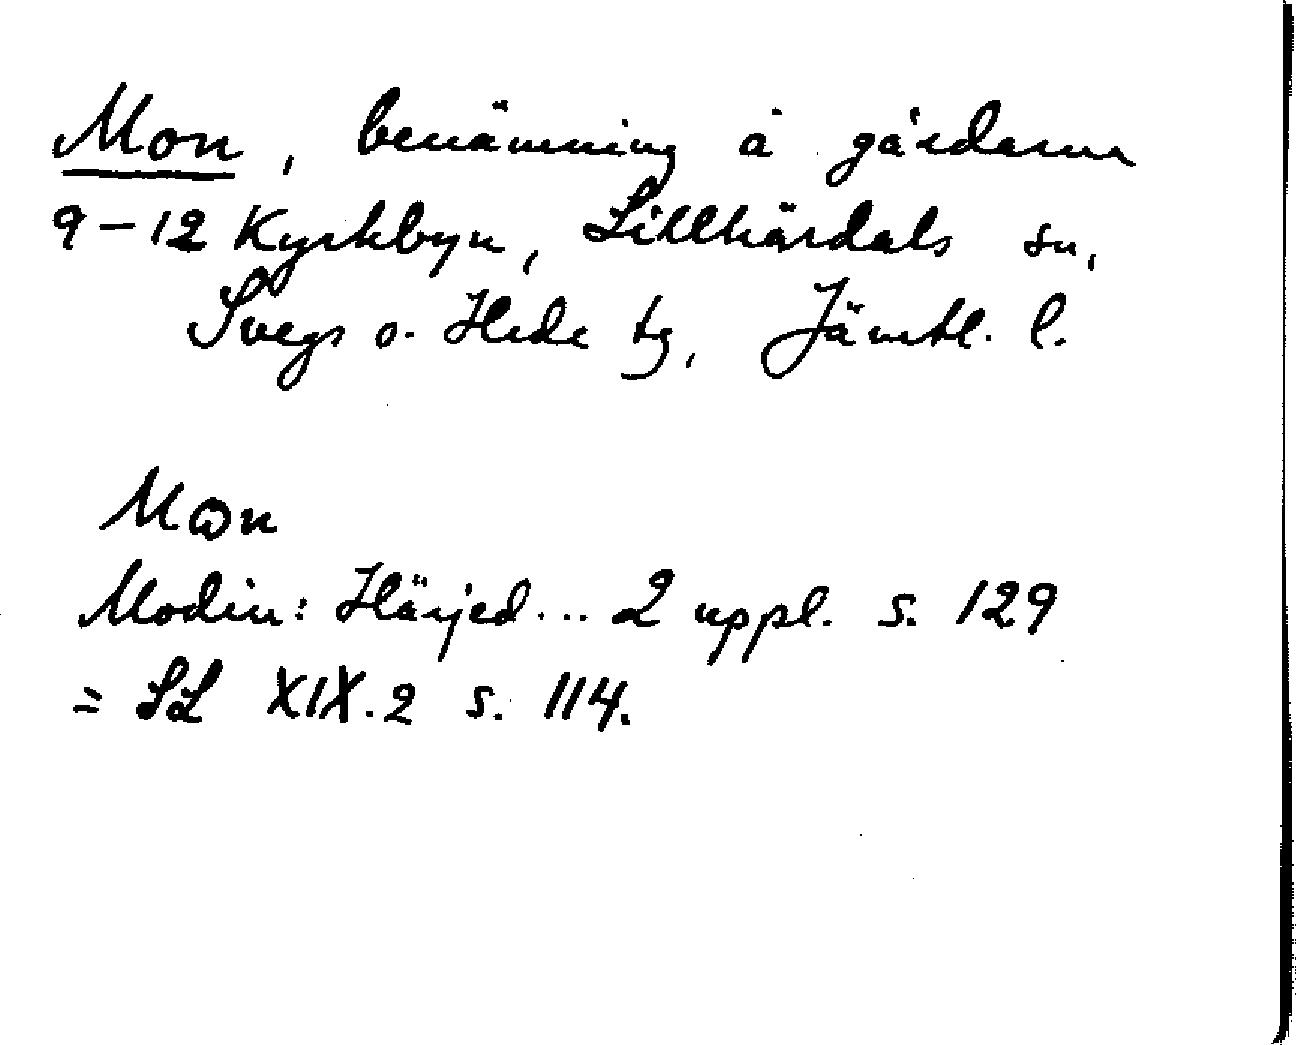 Mon, benämning å gårdarna
9-12 Kyrkbyn, Lillhärdals sn,
Svegs o. Hede tg, Jämtl. l.
Mωn
Modin: Härjed... 2 uppl. s. 129
= SL XIX.2 s. 114.